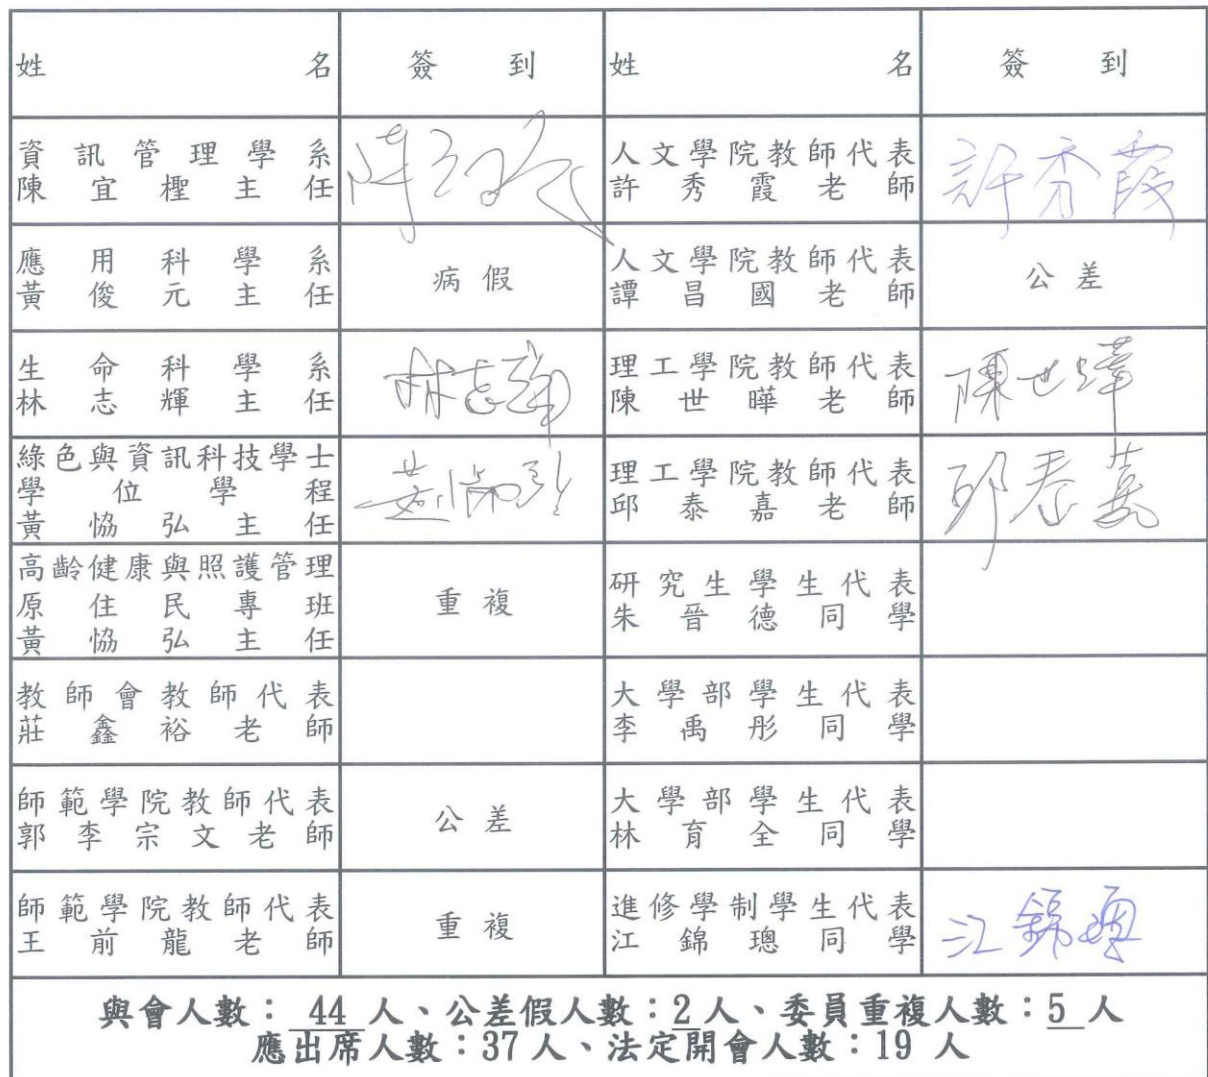 姓名 簽到 姓名 簽到
資訊管理學系
陳宜檉主任
陳宜檉
人文學院教師代表
許秀霞老師
許秀霞
應用科學系
黃俊元主任
病假
人文學院教師代表
譚昌國老師
公差
生命科學系
林志輝主任
林志輝
理工學院教師代表
陳世曄老師
陳世曄
綠色與資訊科技學士
學位學程
黃恊弘主任
理工學院教師代表
邱泰嘉老師
邱泰嘉
高齡健康與照護管理
原住民專班
黃恊弘主任
重複
研究生學生代表
朱晉德同學
教師會教師代表
莊鑫裕老師
大學部學生代表
李禹彤同學
師範學院教師代表
郭李宗文老師
公差
大學部學生代表
林育全同學
師範學院教師代表
王前龍老師
重複
進修學制學生代表
江錦璁同學
江錦璁
與會人數：44人、公差假人數：2人、委員重複人數：5人
應出席人數：37人、法定開會人數：19人